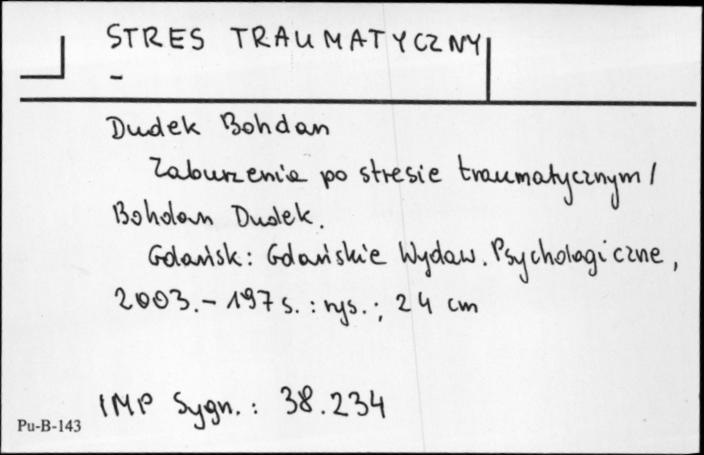 STRES TRAUMATYCZNY
-
Dudek Bohdan
Zaburzenia po stresie traumatycznym /
Bohdan Dudek.
Gdańsk: Gdańskie Wydaw. Psychologiczne,
2003. - 197 s. : rys. ; 24 cm
IMP Sygn. : 38.234
Pu-B-143